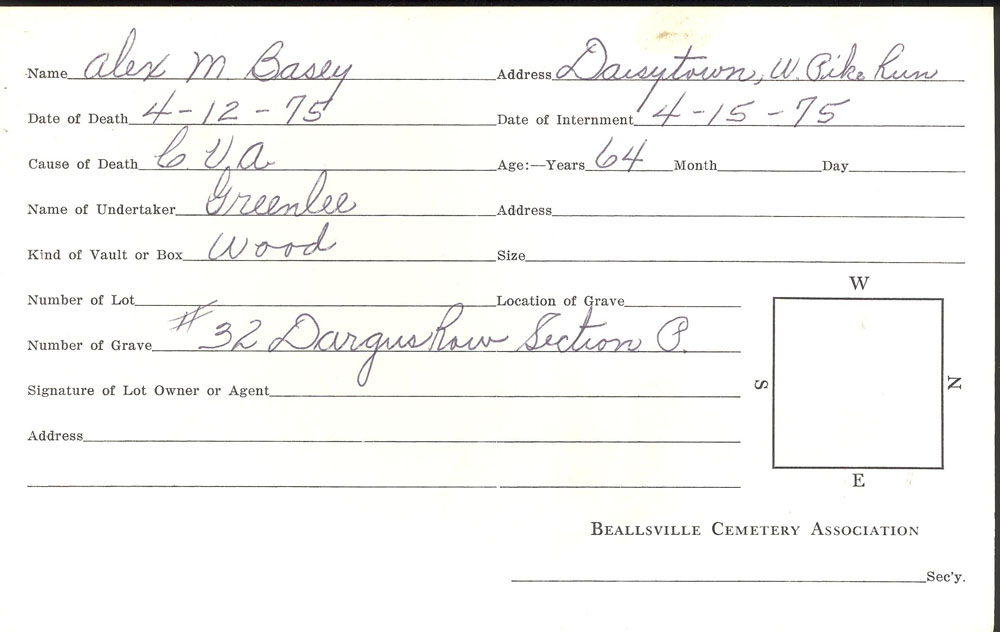 Name Alex M. Basey Address Daisytown, W. Pike Run
Date of Death 4-12-75 Date of Internment 4-15-75
Cause of Death C.V.A. Age:—Years 64 Month Day
Name of Undertaker Greenlee Address
Kind of Vault or Box Wood Size
W
Number of Lot Location of Grave
Number of Grave #32 Dargus Row Section P.
S N
Signature of Lot Owner or Agent
Address
E
BEALLSVILLE CEMETERY ASSOCIATION
Sec'y.